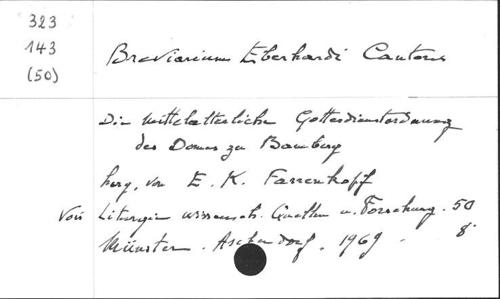 323
143
(50)
Breviarium Eberhardi Cantoris
Die mittelalterliche Gottesdienstordnung
des Domes zu Bamberg
herg. von E. K. Farrenkopf
Liturgie wissensch. Quellen u. Forschung. 50
Münster. Aschendorf. 1969. 8°